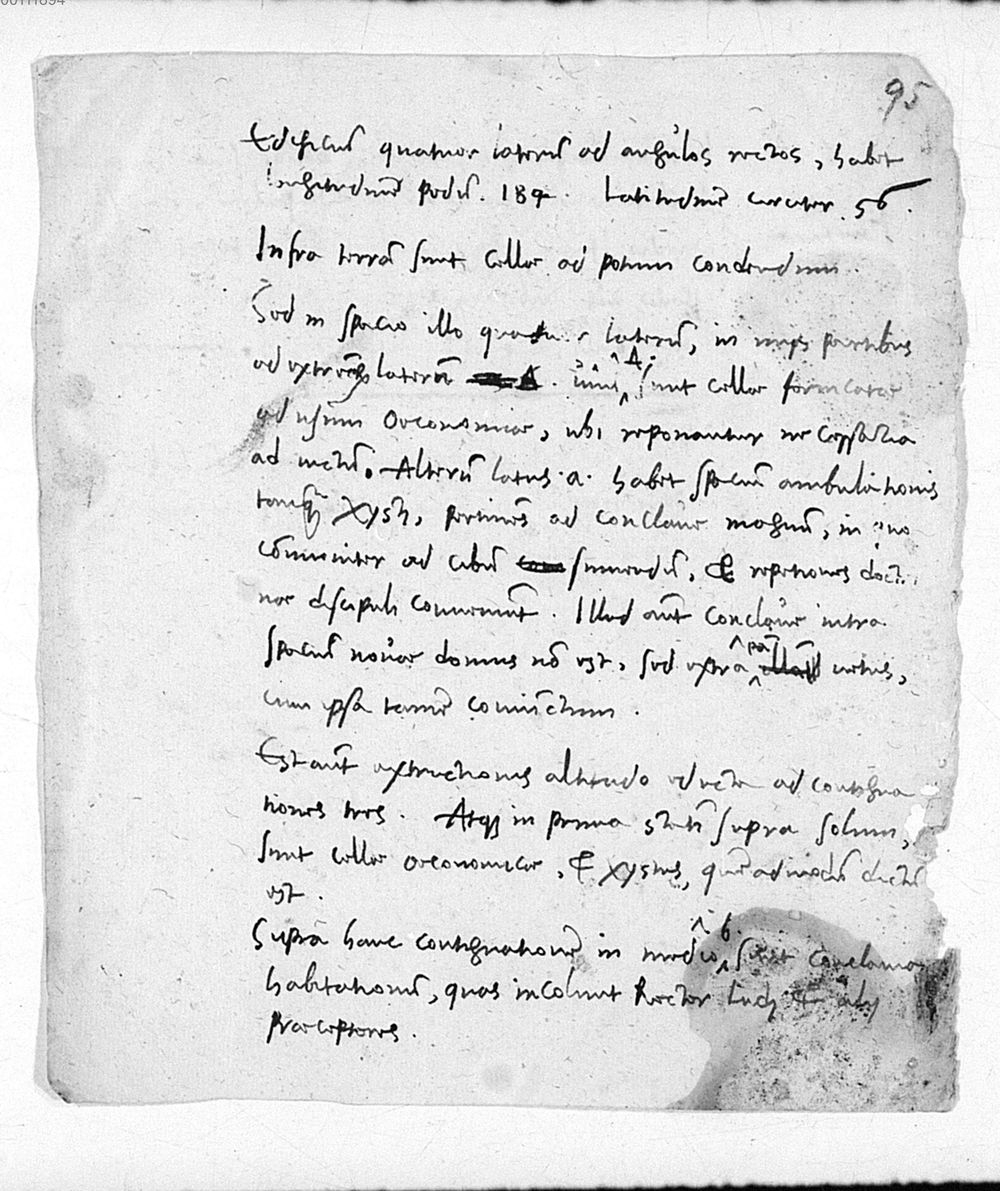 95
Edificiū quatuor laterū ad angulos rectos, habet
longitudinē pedū. 184. Latitudinē circiter. 56.
Infra terrā sunt cellae ad potum condendum.
Sed in spacio illo quatuor laterū, in imis partibus
ad extremū laterū A. sunt cellae fornicatae
ad usum Oeconomiae, ubi reponantur necessaria
ad victū. Alterū latus .a. habet spaciū ambulationis
tanq̄ Xysti, pertinēs ad conclave magnū, in quo
cōmuniter ad cibū sumendū, & repetitiones doctri
nae discipuli conveniūt. Illud aūt conclave intra
spaciū novae domus nō est, sed extra veteris,
cum ipsa tamē coniūctum.
Est aūt extructionis altitudo educta ad contigna
tiones tres. Atq; in prima statī supra solum,
sunt cellae oeconomicae, & Xystus, quēadmodū dictū
est.
Supra hanc contignationē in medio b. sunt conclavia
habitationū, quas incolunt Rector Ludi & alij
praeceptores.